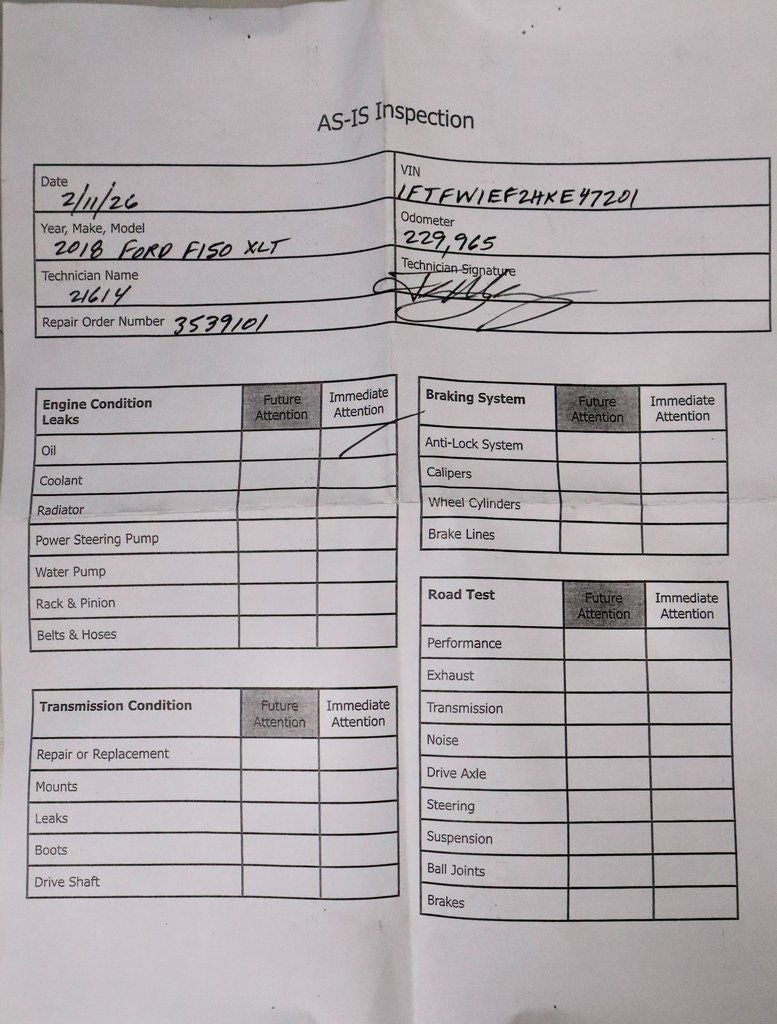 AS-IS Inspection
Date
2/11/26
VIN
1FTFW1EF2HKE47201
Year, Make, Model
2018 FORD F150 XLT
Odometer
229,965
Technician Name
21614
Technician Signature
Repair Order Number 3539101
Engine Condition
Leaks
Future
Attention
Immediate
Attention
Oil
Coolant
Radiator
Power Steering Pump
Water Pump
Rack & Pinion
Belts & Hoses
Transmission Condition
Future
Attention
Immediate
Attention
Repair or Replacement
Mounts
Leaks
Boots
Drive Shaft
Braking System
Future
Attention
Immediate
Attention
Anti-Lock System
Calipers
Wheel Cylinders
Brake Lines
Road Test
Future
Attention
Immediate
Attention
Performance
Exhaust
Transmission
Noise
Drive Axle
Steering
Suspension
Ball Joints
Brakes